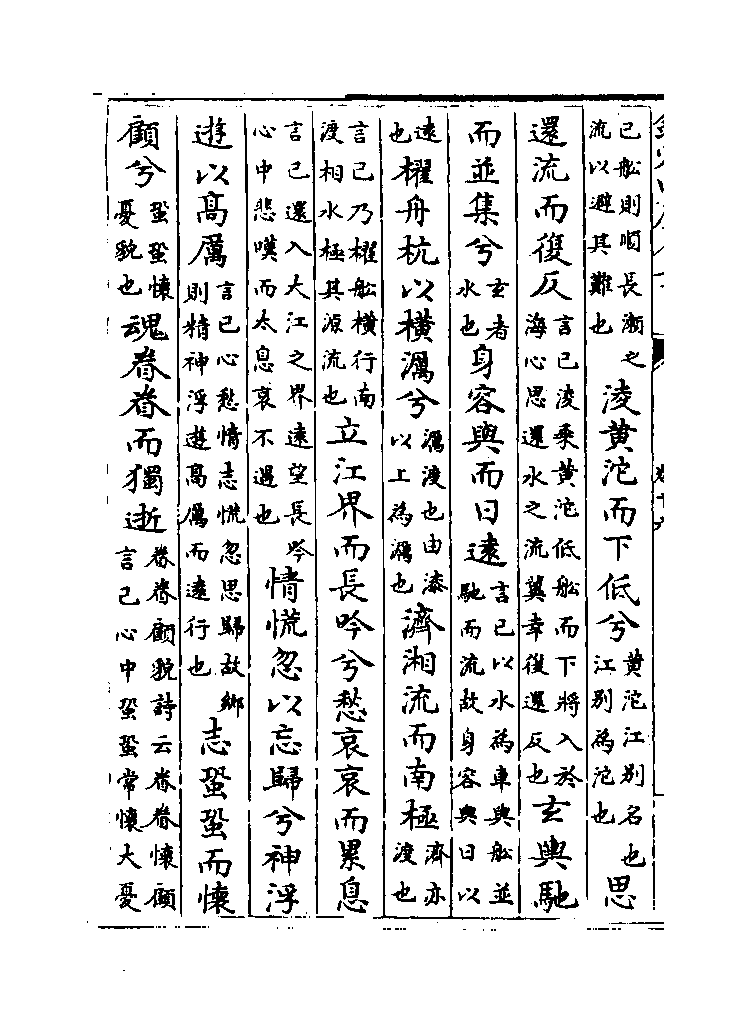 己舩則順長瀬之流以避其難也淩黄沱而下低兮黄沱江别名也江别為沱也思
還流而復反言己淩乗黄沱低舩而下將入於海心思還水之流冀幸復還反也玄輿馳
而並集兮玄者水也身容與而日逺言己以水為車與舩並馳而流故身容與日以
逺也櫂舟杭以横濿兮濿渡也由漆以上為濿也濟湘流而南極濟亦渡也
言己乃櫂舩横行南渡相水極其源流也立江界而長吟兮愁哀哀而累息
言己還入大江之界逺望長吟心中悲嘆而太息哀不遇也情慌忽以忘歸兮神浮
遊以髙厲言己心愁情志慌忽思歸故鄉則精神浮遊髙厲而逺行也志蛩蛩而懷
顧兮蛩蛩懷憂貌也魂眷眷而獨逝眷眷顧貌詩云眷眷懷顧言己心中蛩蛩常懷大憂